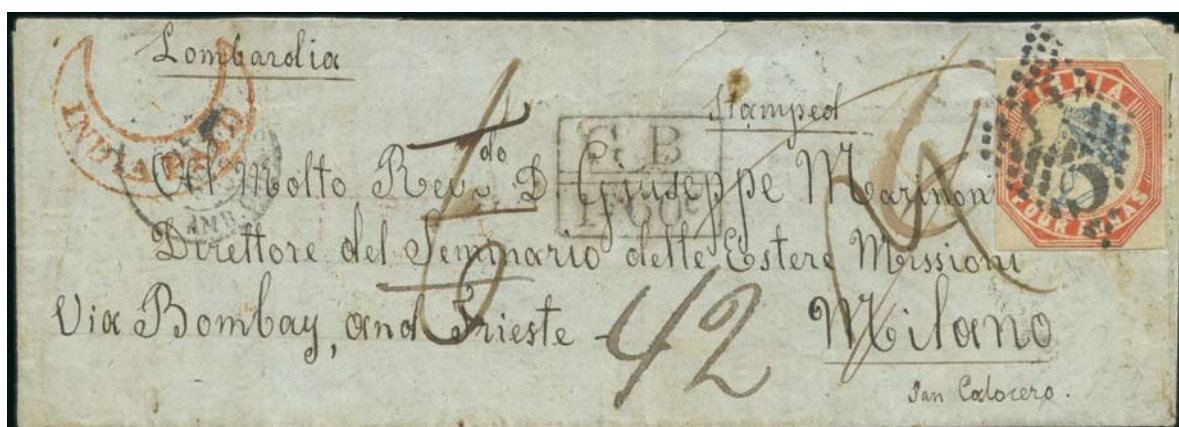 Lombardia
INDIA PAID
Stamped
G.B
1F60c
INDIA
FOUR ANNAS
5
Al Molto Rev.do D. Giuseppe Marinoni
Direttore del Seminario delle Estere Missioni
Via Bombay, and Trieste
Milano
San Calocero.
42